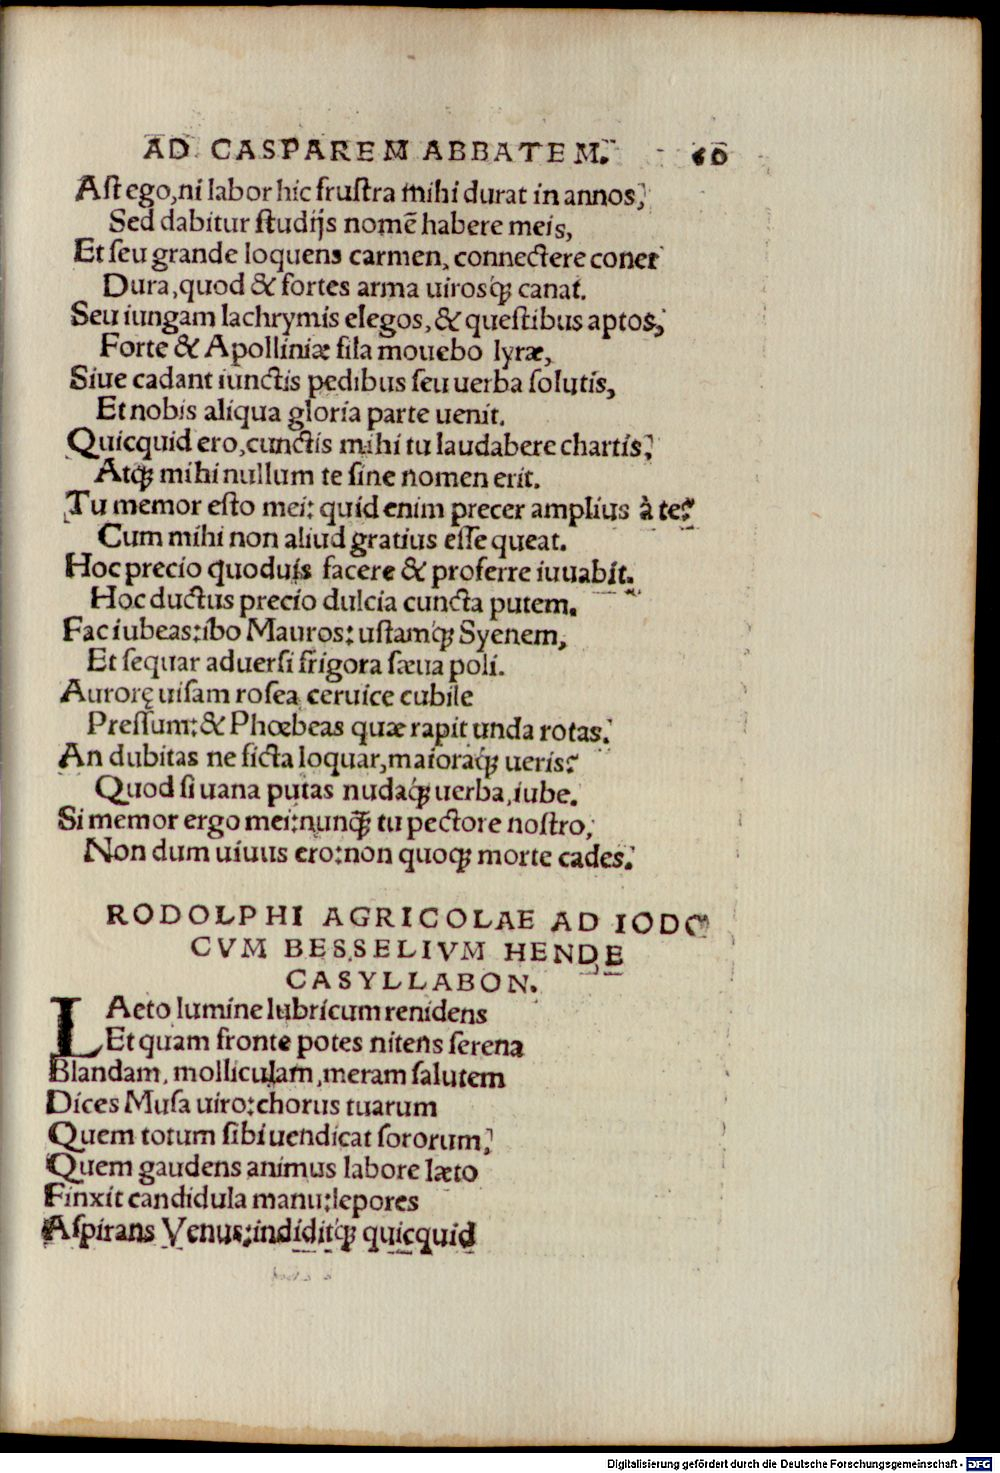 AD CASPAREM ABBATEM. 60
Ast ego, ni labor hic frustra mihi durat in annos,
Sed dabitur studijs nomē habere meis,
Et seu grande loquens carmen, connectere coner
Dura, quod & fortes arma uirosꝗ canat.
Seu iungam lachrymis elegos, & questibus aptos,
Forte & Apolliniæ fila mouebo lyræ,
Siue cadant iunctis pedibus seu uerba solutis,
Et nobis aliqua gloria parte uenit.
Quicquid ero, cunctis mihi tu laudabere chartis,
Atꝗ mihi nullum te sine nomen erit.
Tu memor esto mei: quid enim precer amplius à te?
Cum mihi non aliud gratius esse queat.
Hoc precio quoduis facere & proferre iuuabit.
Hoc ductus precio dulcia cuncta putem.
Fac iubeas: ibo Mauros: ustamꝗ Syenem,
Et sequar aduersi frigora sæua poli.
Aurorę uisam rosea ceruice cubile
Pressum: & Phœbeas quæ rapit unda rotas.
An dubitas ne ficta loquar, maioraꝗ ueris?
Quod si uana putas nudaꝗ uerba, iube.
Si memor ergo mei: nunꝗ̃ tu pectore nostro,
Non dum uiuus ero: non quoꝗ morte cades.
RODOLPHI AGRICOLAE AD IODO
CVM BESSELIVM HENDE
CASYLLABON.
LAeto lumine lubricum renidens
Et quam fronte potes nitens serena
Blandam, molliculam, meram salutem
Dices Musa uiro: chorus tuarum
Quem totum sibi uendicat sororum,
Quem gaudens animus labore læto
Finxit candidula manu: lepores
Aspirans Venus: indiditꝗ quicquid
Digitalisierung gefördert durch die Deutsche Forschungsgemeinschaft - DFG